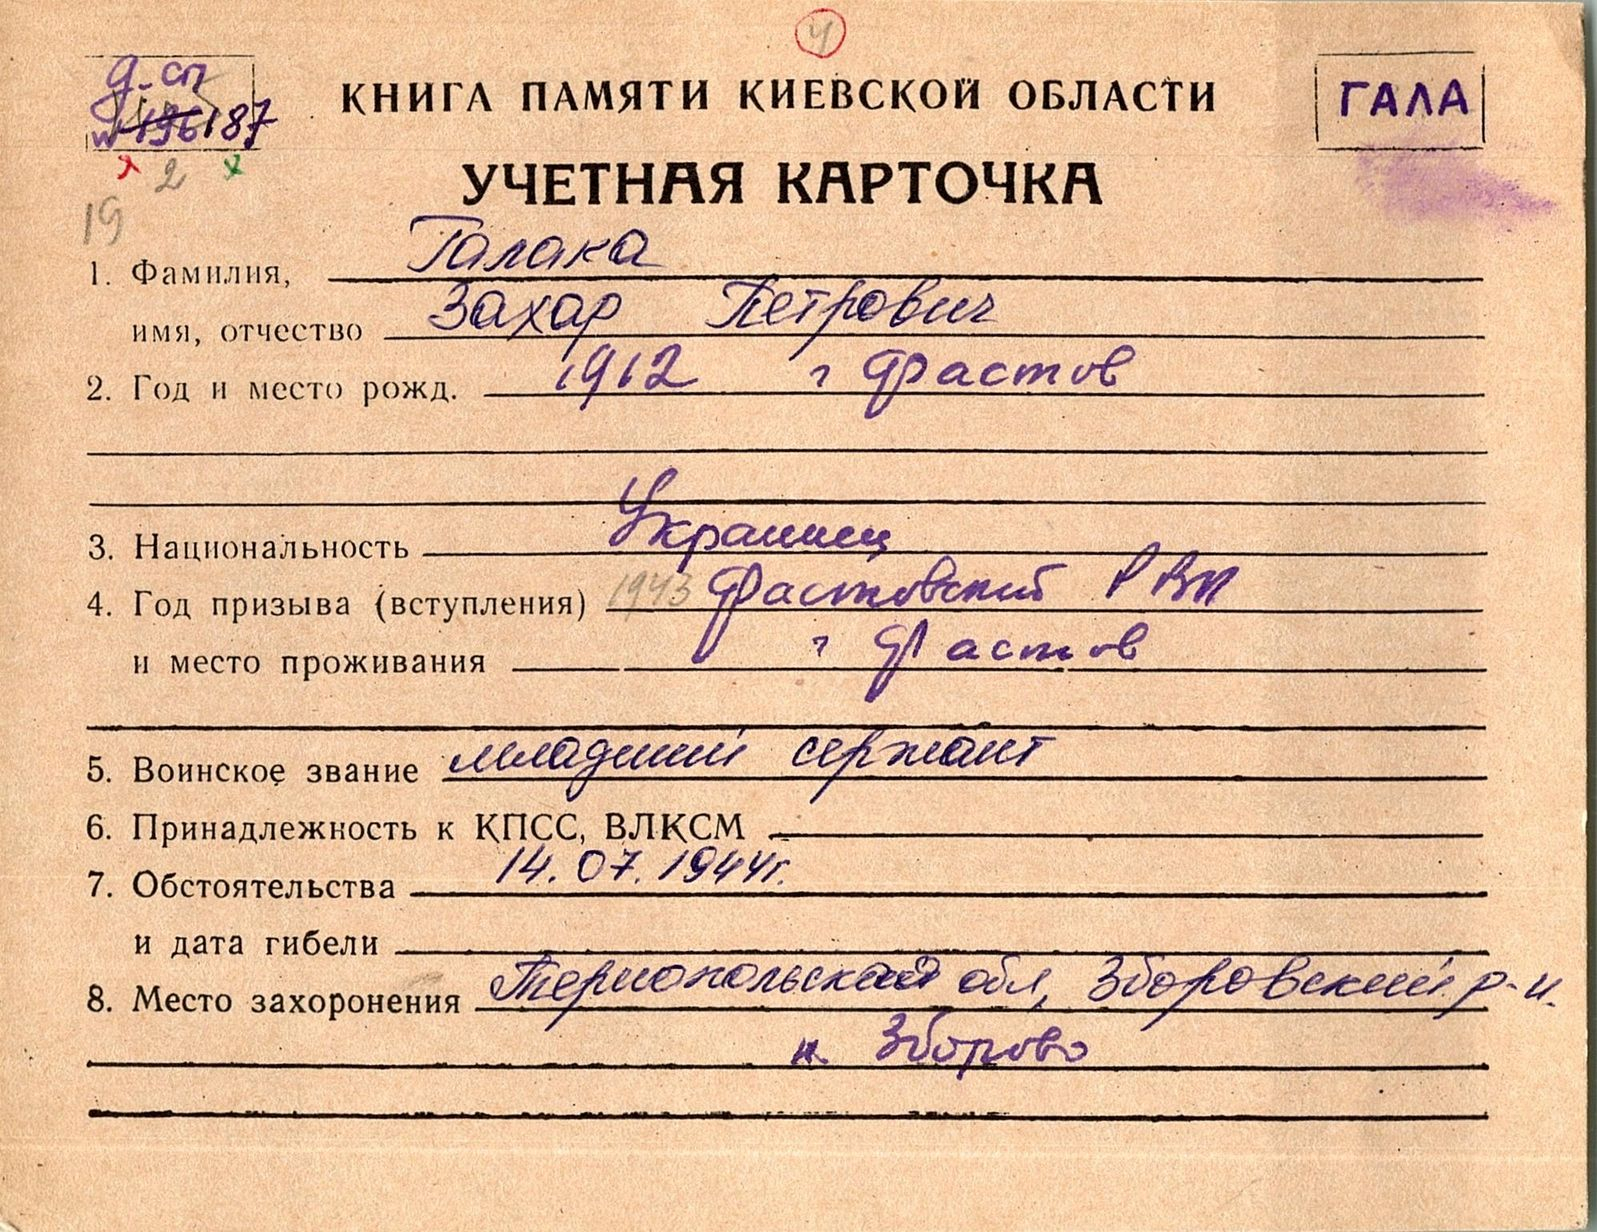 4
д-сп
187
ГАЛА
КНИГА ПАМЯТИ КИЕВСКОЙ ОБЛАСТИ
УЧЕТНАЯ КАРТОЧКА
2
19
1. Фамилия, Галака
имя, отчество Захар Петрович
2. Год и место рожд. 1912 г Фастов
3. Национальность Украинец
4. Год призыва (вступления) 1943 Фастовский РВК
и место проживания г Фастов
5. Воинское звание младший сержант
6. Принадлежность к КПСС, ВЛКСМ
7. Обстоятельства 14.07.1944г.
и дата гибели
8. Место захоронения Тернопольская обл, Зборовский р-н.
н. Зборово